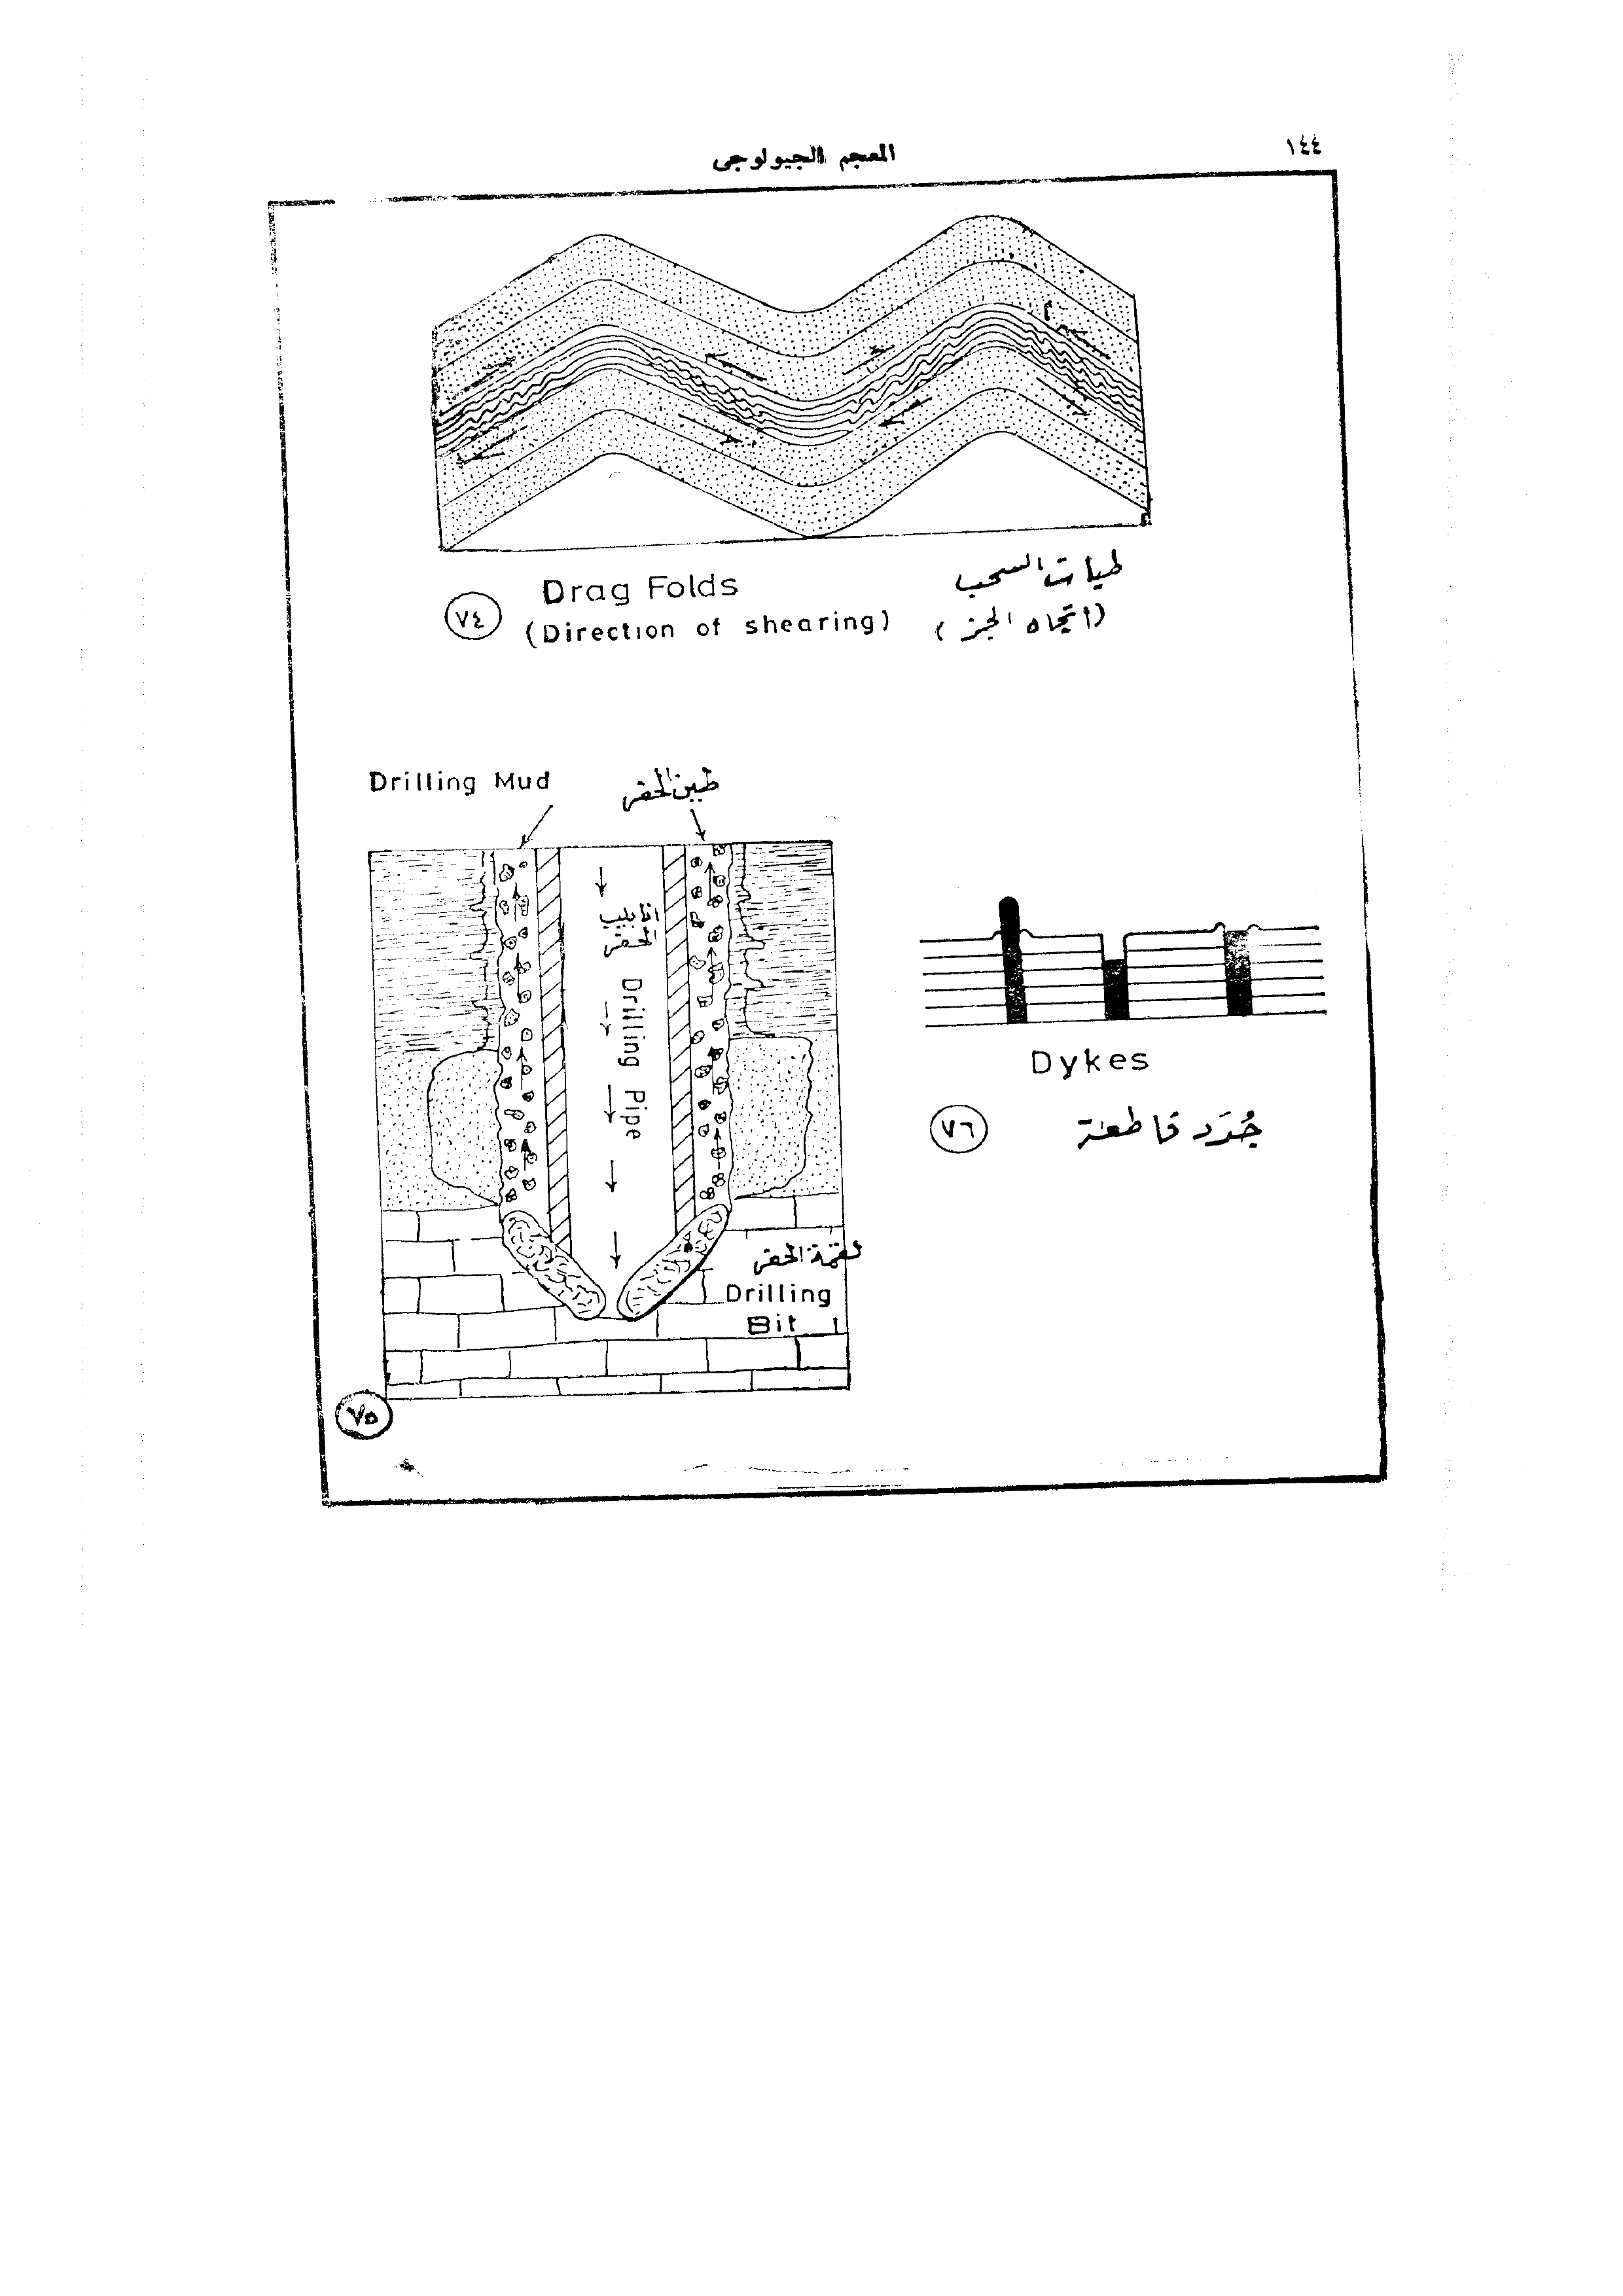 ١٤٤
المعجم الجيولوجى
Drag Folds
طيات السحب
٧٤
(Direction of shearing)
(اتجاه الجز)
Drilling Mud
طين الحفر
انابيب
الحفر
Drilling Pipe
لقمة الحفر
Drilling
Bit
٧٥
Dykes
٧٦
جُدَد قاطعة